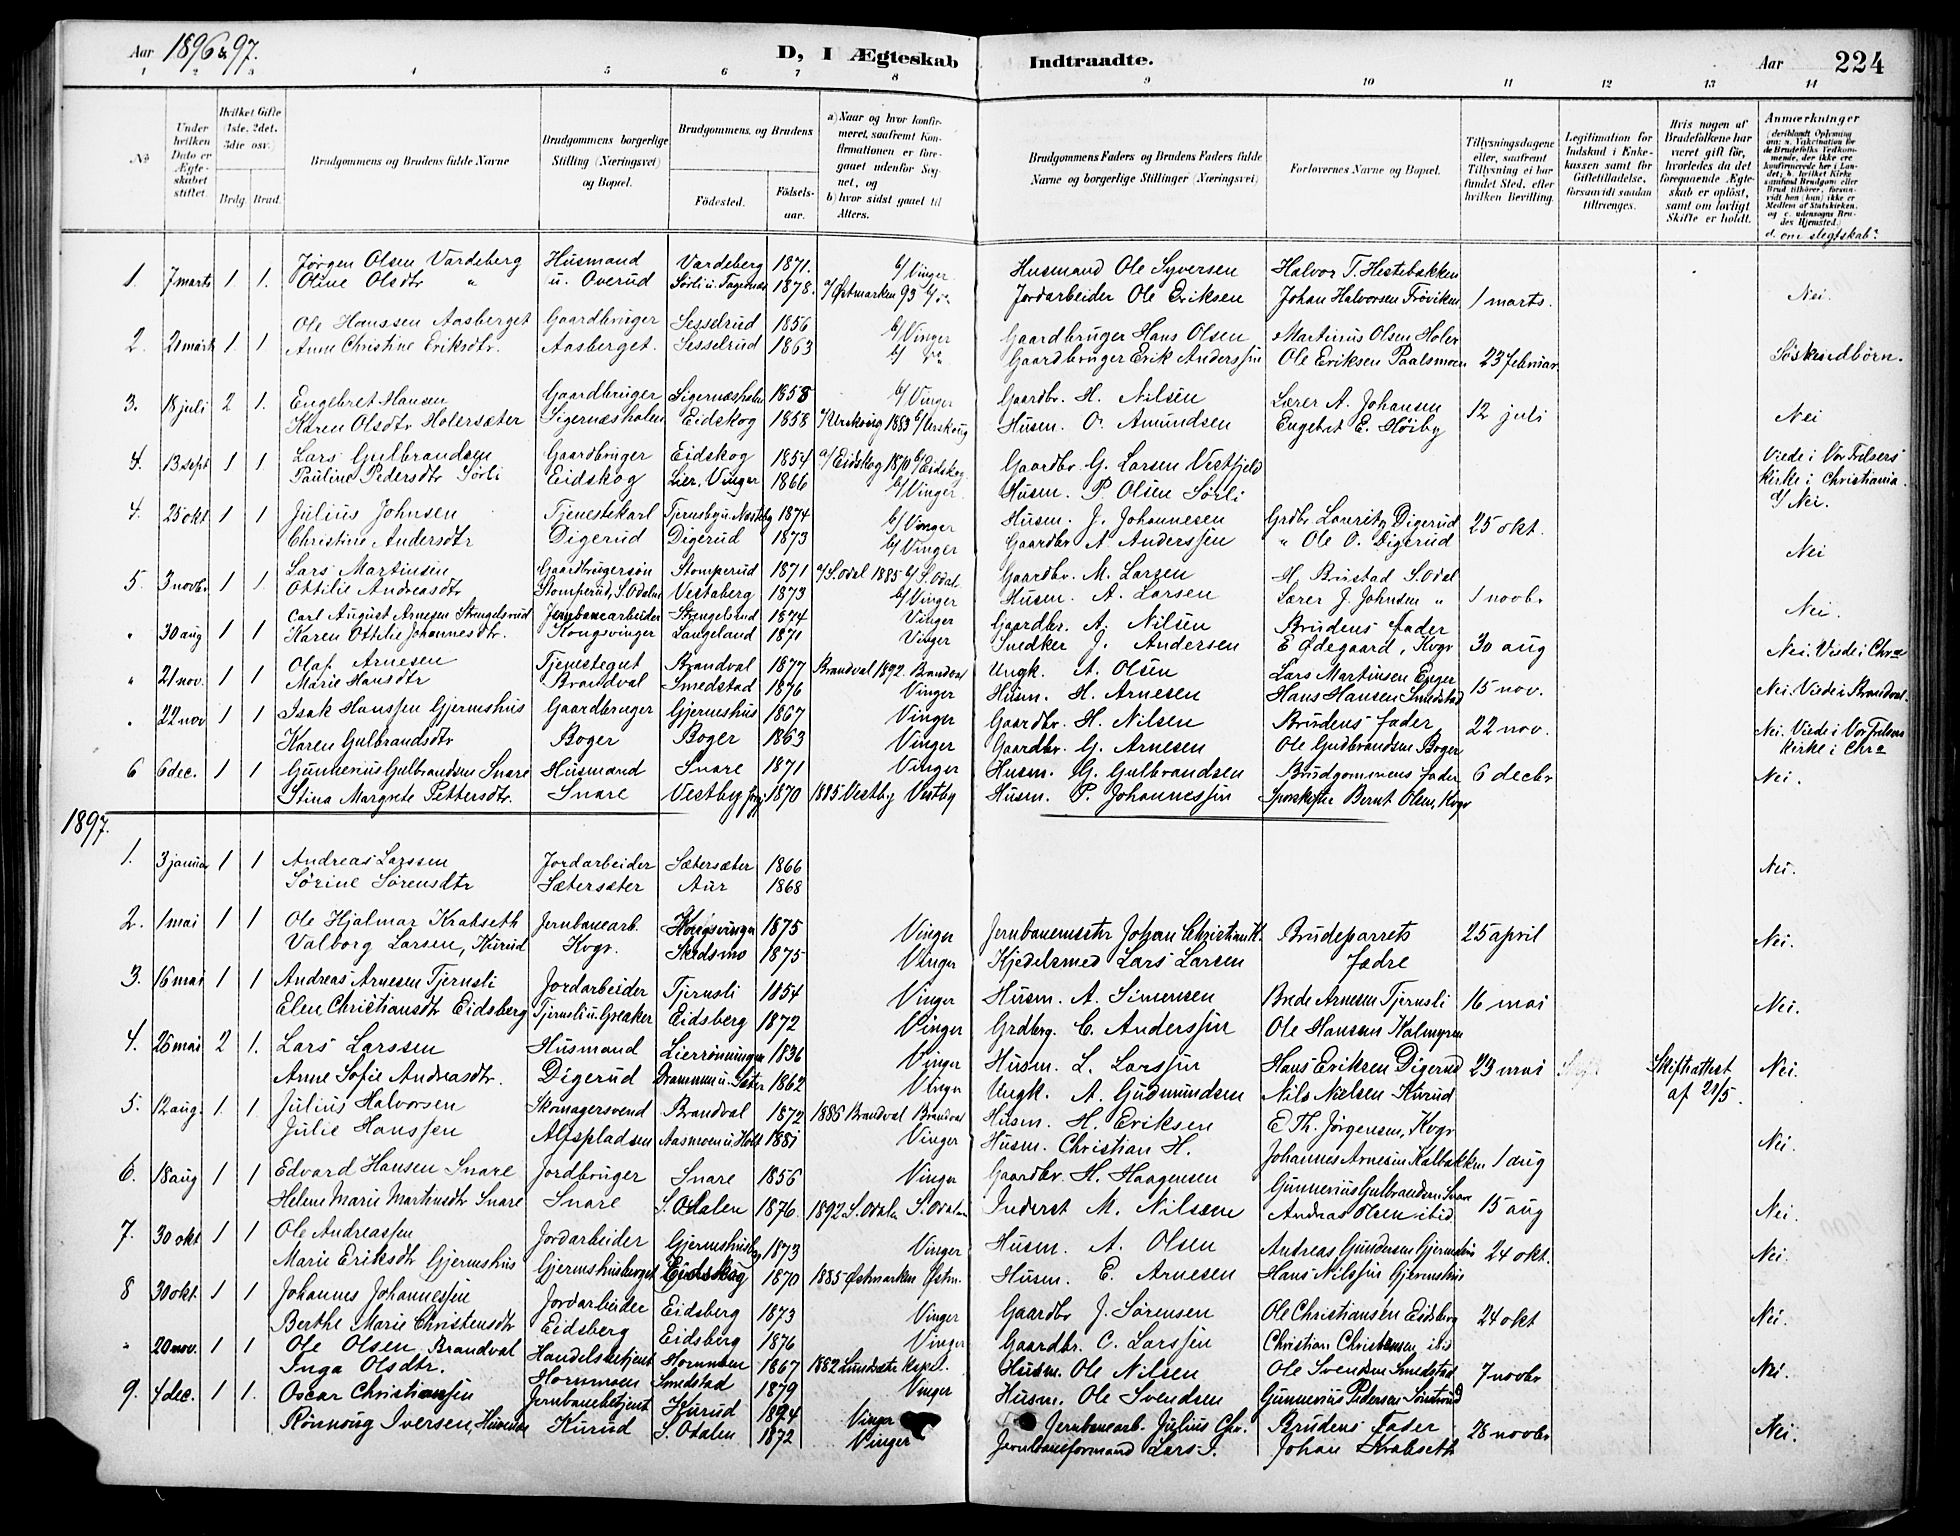 Aar 1896 & 97. D, I Ægteskab Indtraadte. Aar 224
1 2 3 4 5 6 7 8 9 10 11 12 13 14
No
Under hvilken Dato er Ægteskabet stiftet.
Hvilket Gifte (1ste, 2det, 3die osv.)
Brdg. Brud.
Brudgommens og Brudens fulde Navne
Brudgommens borgerlige Stilling (Næringsvei) og Bopæl.
Brudgommens og Brudens
Födested. Födselsaar.
a) Naar og hvor konfirmeret, saafremt Konfirmationen er foregaaet udenfor Sognet, og
b) hvor sidst gaaet til Alters.
Brudgommens Faders og Brudens Faders fulde Navne og borgerlige Stillinger (Næringsvei)
Forlovernes Navne og Bopæl.
Tillysningsdagene eller, saafremt Tillysning ei har fundet Sted, efter hvilken Bevilling.
Legitimation for Indskud i Enkekassen samt for Giftetilladelse, forsaavidt saadan tiltrænges.
Hvis nogen af Brudefolkene har været gift før, hvorledes da det foregaaende Ægteskab er oplöst, samt om lovligt Skifte er holdt.
Anmærkninger
d. om slegtskab?
1. 7 marts 1 1. Jørgen Olsen Vardeberg Husmand Vardeberg 1871. b/ Vinger Husmand Ole Syversen Halvor T. Hestebakken
Oline Olsdtr " u. Overud Sörli u. Tagernæs 1878. a/ Østmarken 93 b/ do Jordarbeider Ole Eriksen Johan Halvorsen Tröviken 1 marts. Nei.
2. 21 marts 1 1. Ole Hanssen Aasberget Gaardbruger Sesselrud 1856 b/ Vinger Gaardbruger Hans Olsen Martinus Olsen Holer
Anne Christine Eriksdtr. Aasberget. Sesselrud 1863 b/ do Gaardbruger Erik Anderssen Ole Eriksen Paalsmoen 23 februar Söskindbörn.
3. 18 juli 2 1. Engebret Hansen Gaardbruger Sigernæsholen 1858 b/ Vinger Gaardbr. H. Nilsen Lærer A. Johansen
Karen Olsdtr Holersæter Sigernæsholen Eidskog 1858 a/ Urskoug 1883 b/ Urskoug Husm. O. Amundsen Engebret E. Höiby 12 juli Nei
4. 13 sept 1 1. Lars Gulbrandsen Gaardbruger Eidskog 1854 a/ Eidskog 1870 b/ Eidskog Gaardbr G. Larsen Vestfjeld Viede i Vor Frelsers
Pauline Pedersdtr Sörli Eidskog Lier, Vinger 1866 b/ Vinger. Husm. P. Olsen Sörli Kirke i Christiania.
d/ Nei.
4. 25 okt 1 1 Julius Johnsen Tjenestekarl Tjernsby u. Næsteby 1874 b/ Vinger Husm. J. Johannesen Grdbr Lauritz Digerud 25 okt.
Christine Andersdtr Digerud Digerud 1873 b/ Vinger Gaardbr A Anderssen " Ole O. Digerud Nei
5. 3 novbr 1 1 Lars Martinsen Gaardbrugersøn Stomperud 1871 a/ S. Odal 1885 b/ S. Odal. Gaardbr. M. Larsen H. Bustad S. Odal
Ottilie Andreasdtr Stomperud, S. Odalen Vestaberg 1873 b/ Vinger Husm. A. Larsen Lærer J. Johnsen " 1 novbr Nei.
" 30 aug 1 1 Carl August Arnesen Stengelsrud Jernbanearbeider Stengelsrud 1874 Vinger Gaardbr. A. Nilsen Brudens fader
Karen Ottilie Johannesdtr. Kongsvinger Langeland 1871 Vinger Snedker J. Andersen E Ødegaard, Kvgr 30 aug Nei. Viede i Chra
" 21 nov. 1 1 Olaf Arnesen Tjenestegut Brandval 1877 Brandval 1892. Brandval Ungk. A. Olsen Lars Martinsen Enger
Marie Hansdtr Brandval Smedstad 1876 Vinger Husm. H. Arnesen Hans Hansen Smedstad 15 nov. Nei. Viede i Brandval.
" 22 nov 1 1 Isak Hanssen Gjermshus Gaardbruger Gjermshus 1867 Vinger Gaardbr. H. Nilsen Brudens fader 22 nov. Nei. Viede i Vor Frelsers
Karen Gulbrandsdtr Boger Boger 1863 Vinger Gaardbr. G. Arnesen Ole Gudbrandsen Boger Kirke i Chra
6 6 dec. 1 1 Gunnerius Gulbrandsen Snare Husmand Snare 1871 Vinger Husm. G. Gulbrandsen Brudgommens fader 6 decbr Nei.
Stina Margrete Pettersdtr. Snare Vestby prgj. 1870 1885 Vestby Vestby Husm. P. Johannessen Bernt Olsen, Kvgr
1897.
1. 3 januar 1 1 Andreas Larssen Jordarbeider Sætersæter 1866
Sörine Sörensdtr Sætersæter Aur 1868 Nei.
2. 1 mai 1 1 Ole Hjalmar Krabseth Jernbanearb. Kongsvinger 1875 Vinger Jernbanemester Johan Christian K. Brudeparrets 25 april
Valborg Larsen, Kurud Kvgr. Skedsmo 1875 Vinger Kjedelsmed Lars Larsen fædre Nei.
3. 16 mai 1 1 Andreas Arnesen Tjernsli Jordarbeider Tjernsli 1854 Vinger Husm. A. Simensen Brede Arnesen Tjernsli 16 mai
Elen Christiansdtr Eidsberg Tjernsli u. Greaker Eidsberg 1872 Vinger Grdberg. C. Anderssen Ole Hansen Kalmyren Nei.
4. 26 mai 2 1. Lars Larssen Husmand Lierrönningen 1836 Vinger Husm. L. Larssen Hans Eriksen Digerud 23 mai Skifteattest Nei.
Anne Sofie Andreasdtr. Digerud Drammen u. Sæter 1862 Vinger Ungk. A. Gudmundsen Nils Nielsen Kurud af 21/5.
5. 12 aug. 1. 1. Julius Halvorsen Skomagersvend Brandval 1872 1886 Brandval Brandval Husm. H. Eriksen E. Th. Jörgensen, Kvgr
Julie Hanssen Alfspladsen Aasmoen u. Holt 1881 Vinger Husm. Christian H. Johannes Arnesen Kalbakken 1 aug Nei.
6. 18 aug 1 1 Edvard Hansen Snare Jordbruger Snare 1856 Vinger Gaardbr. H. Haagensen Gunnerius Gulbrandsen Snare
Helene Marie Martinsdtr Snare Snare S. Odalen 1876. 1892 S. Odalen S. Odalen Inderst M. Nilsen Andreas Olsen ibid. 15 aug Nei.
7. 30 okt 1 1 Ole Andreassen Jordarbeider Gjermshusberg 1873 Vinger Husm. A. Olsen Andreas Gundersen Gjermshus 24 okt. Nei.
Marie Eriksdtr Gjermshus Gjermshusberget Eidskog 1870 1885 Østmarken Østm. Husm. E. Arnesen Hans Nilssen Gjermshus
8 30 okt. 1 1 Johannes Johannessen Jordarbeider Eidsberg 1873 Vinger Gaardbr J. Sörensen Ole Christiansen Eidsberg 24 okt Nei.
Berthe Marie Christensdtr Eidsberg Eidsberg 1876 Vinger Gaardbr. C. Larssen Christian Christensen ibid
" 20 nov. 1 1 Ole Olsen, Brandval Handelsbetjent Hornmoen 1867 1882 Lundersæter Kapel. Husm. Ole Nilsen Ole Svendsen Smedstad 7 novbr Nei.
Inga Olsdtr. Hornmoen Smedstad 1879 Vinger Husm. Ole Svendsen Gunnerius Pedersen
9. 4 dec. 1 1. Oscar Christiansen Jernbanebetjent Kurud 1874 Vinger Jernbanearb. Julius Chr. Brudens Fader 28 novbr Nei.
Rönnoug Iversen, Kurud S. Odalen 1872 Vinger Jernbaneformand Lars I. Johan Krabseth